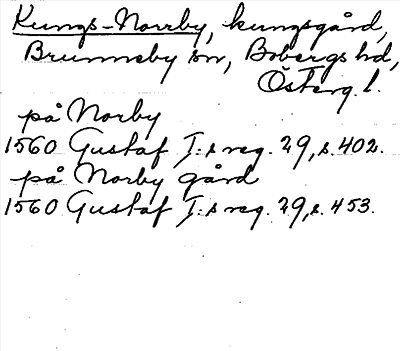 Kungs-Norrby, kungsgård,
Brunneby sn, Bobergs hd,
Österg. l.
på Norby
1560 Gustaf I:s reg. 29, s. 402.
på Norby gård
1560 Gustaf I:s reg. 29, s. 453.